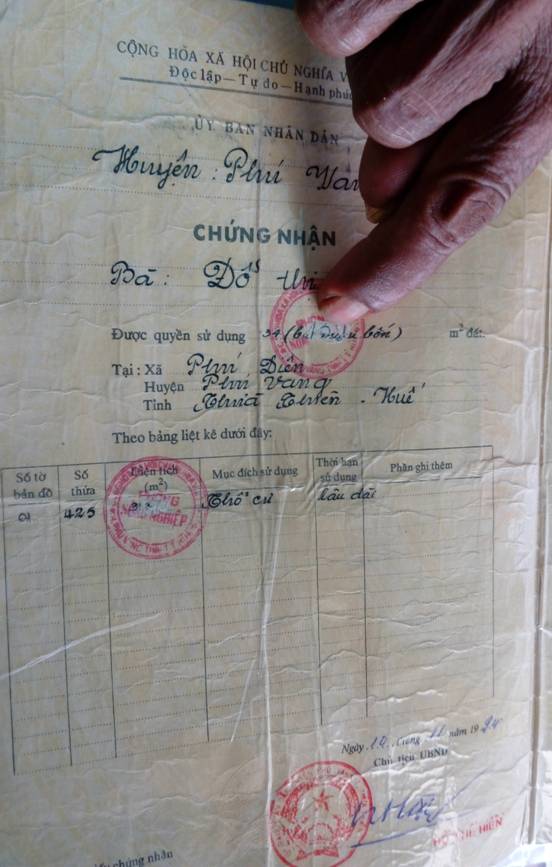 CỘNG HÒA XÃ HỘI CHỦ NGHĨA V
Độc lập — Tự do — Hạnh phú
ỦY BAN NHÂN DÂN
Huyện : Phú Van
CHỨNG NHẬN
Bà : Đỗ thị
Được quyền sử dụng 34 (ba bốn) m² đất
Tại : Xã Phú Diên
Huyện Phú Vang
Tỉnh Thừa Thiên - Huế
Theo bảng liệt kê dưới đây:
Số tờ bản đồ Số thửa Diện tích (m²) Mục đích sử dụng Thời hạn sử dụng Phần ghi thêm
01 425 Thổ cư lâu dài
PHÒNG NÔNG NGHIỆP
Ngày 10 tháng 11 năm 1994
Chủ tịch UBND
HẾ HIỂN
chứng nhận